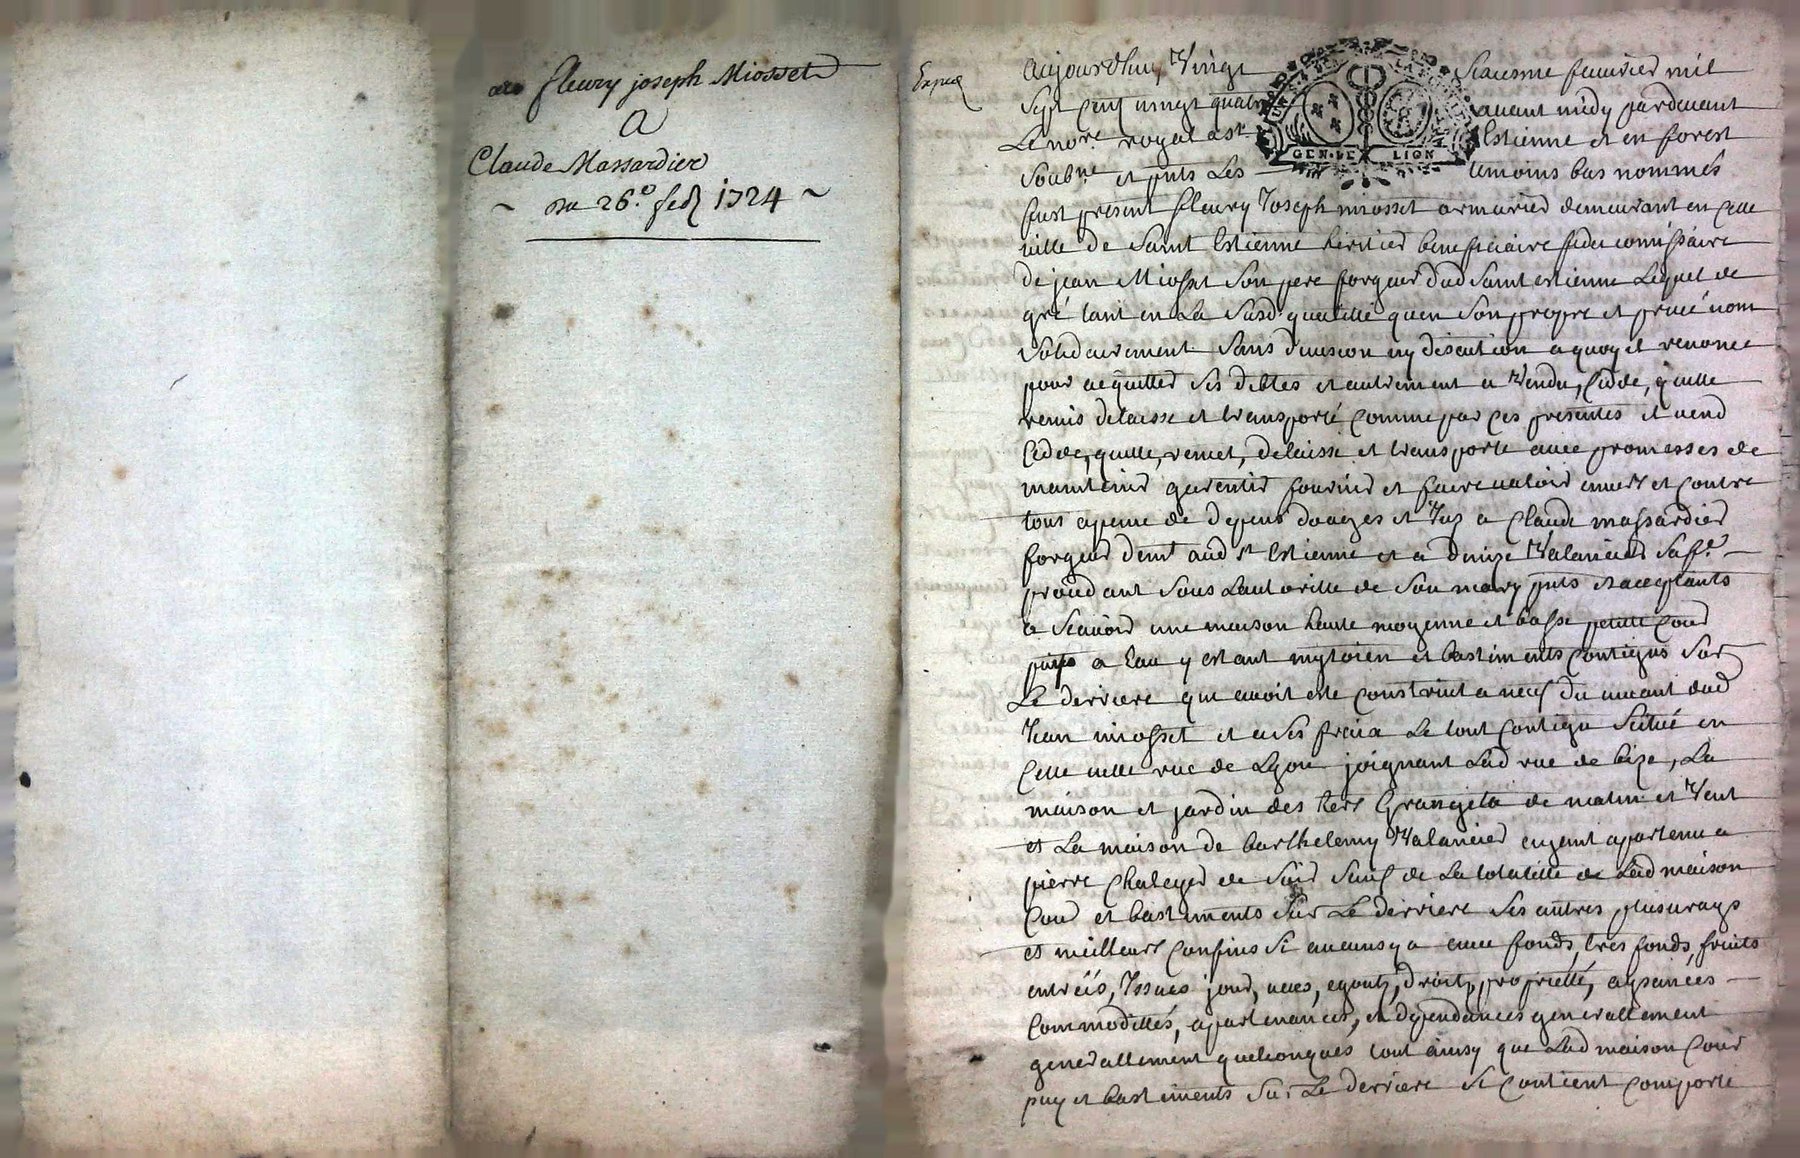 fleury joseph Miosset
A
Claude Massardier
~ du 26.e feb 1724 ~
Expié
Aujourdhuy Vingt Sixiesme feuvrier mil
Sept Cent vingt quatre avant midy pardevant
Le nore. royal a St. Estienne et en forest
Soubne et pnts Les temoins bas nommés
GEN.DE LION
fust present fleury Joseph miosset armurier demeurant en cette
ville de Saint Estienne heritier beneficiaire fidei comissaire
de jean Miosset Son pere forgeur dud Saint estienne Lequel de
gré tant en La Susd. qualitté quen Son propre et privé nom
Solidairement Sans division ny discution a quoy il renonce
pour acquitter Ses debtes et autrement a Vendu, Cedde, quitte
remis delaisse et transporté Comme par Ces presentes il vend
Cedde, quitte, remet, delaisse et transporte avec promesses de
maintenir garentir fournir et faire valoir envers et Contre
tous a peine de depens domages et Jnz a Claude massardier
forgeur demt aud St Estienne et a Valancier Sa fe.
procedant Sous Lautoritté de Son mary pnts et acceptants
a Scavoir une maison haute moyenne et basse petitte Cour
puits a Eau y estant mytoien et bastiments Contigus Sur
Le derriere qui avoit esté Construit a neuf du vivant dud
Jean miosset et a Ses fraix Le tout Contigu Scitué en
Cette ville rue de Lyon joignant Lad rue de bize, La
maison et jardin des hers Grangeta de matin et Vent
et La maison de barthelemy Valancier ayant apartenu a
pierre Chaleyer de Soir Sauf de La totalitté de Lad maison
Cour et bastiments Sur Le derriere Ses autres plus vrays
et meilleurs Confins Si aucuns y a avec fonds, tres fonds, fruits
entréés, Jssues jour, veues, egouts, droits, proprietté, aysances
Commodittés, apartenances, et dependances generallement
generallement quelconques tout ainsy que Lad maison Cour
puy et bastiments Sur Le derriere Se Contient Comporte